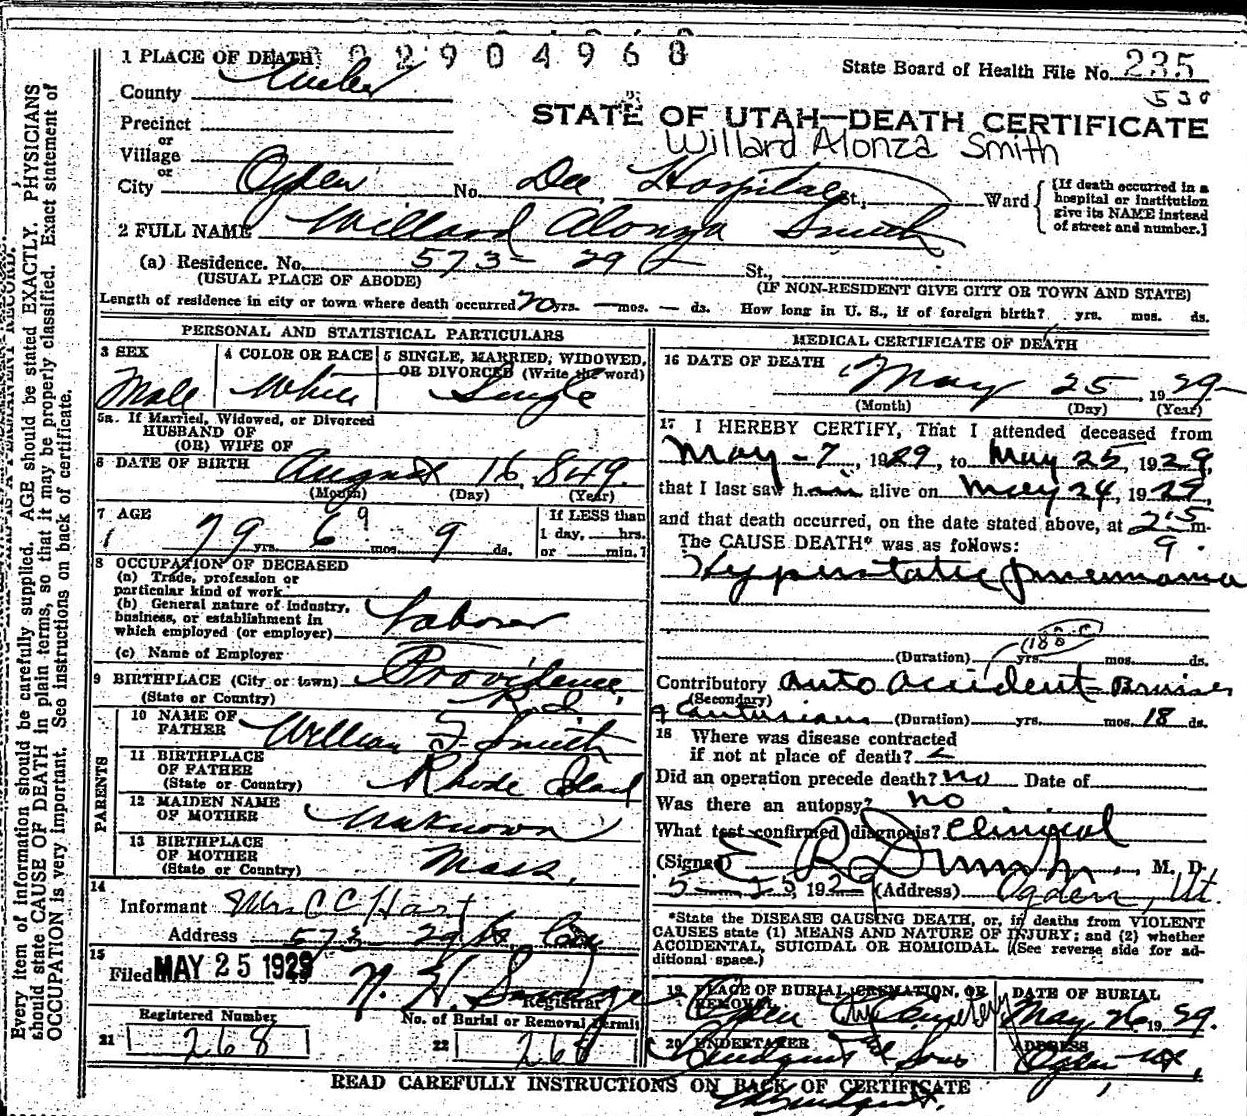 1 PLACE OF DEATH 2904968
State Board of Health File No. 235
County Weber
530
STATE OF UTAH—DEATH CERTIFICATE
Precinct
Willard Alonza Smith
or
Village
or
City Ogden No. Dee Hospital St., Ward
[If death occurred in a
hospital or institution
give its NAME instead
of street and number.]
2 FULL NAME Willard Alonza Smith
(a) Residence. No. 573- 29 St.,
(USUAL PLACE OF ABODE) (IF NON-RESIDENT GIVE CITY OR TOWN AND STATE)
Length of residence in city or town where death occurred 70 yrs. — mos. — ds. How long in U. S., if of foreign birth? yrs. mos. ds.
PERSONAL AND STATISTICAL PARTICULARS
3 SEX 4 COLOR OR RACE 5 SINGLE, MARRIED, WIDOWED,
OR DIVORCED (Write the word)
Male White Single
5a. If Married, Widowed, or Divorced
HUSBAND OF
(OR) WIFE OF
6 DATE OF BIRTH August 16, 849.
(Month) (Day) (Year)
7 AGE If LESS than
79 yrs. 6 9 mos. 9 ds. 1 day, hrs.
or min.?
8 OCCUPATION OF DECEASED
(a) Trade, profession or
particular kind of work
(b) General nature of Industry,
business, or establishment in
which employed (or employer) Laborer
(c) Name of Employer
9 BIRTHPLACE (City or town) Providence,
(State or Country) R.I.
PARENTS
10 NAME OF
FATHER William F. Smith
11 BIRTHPLACE
OF FATHER
(State or Country) Rhode Island
12 MAIDEN NAME
OF MOTHER Unknown
13 BIRTHPLACE
OF MOTHER
(State or Country) Mass.
14
Informant Mrs C C Hart
Address 573- 29th St.
15
Filed MAY 25 1929
Registrar
Registered Number No. of Burial or Removal Permit
21 268 22 268
MEDICAL CERTIFICATE OF DEATH
16 DATE OF DEATH May 25, 1929-
(Month) (Day) (Year)
17 I HEREBY CERTIFY, That I attended deceased from
May-7, 1929, to May 25, 1929,
that I last saw him alive on May 24, 1929,
and that death occurred, on the date stated above, at m.
The CAUSE DEATH* was as follows:
Hyperstatic Pneumonia
(Duration) yrs. mos. ds.
Contributory Auto accident- Bruises
(Secondary)
+ Contusions (Duration) yrs. mos. 18 ds.
18 Where was disease contracted
if not at place of death?
Did an operation precede death? no Date of
Was there an autopsy? no
What test confirmed diagnosis? Clinical
(Signed) M. D.
(Address) Ogden, Ut.
*State the DISEASE CAUSING DEATH, or, in deaths from VIOLENT
CAUSES state (1) MEANS AND NATURE OF INJURY; and (2) whether
ACCIDENTAL, SUICIDAL OR HOMICIDAL. (See reverse side for ad-
ditional space.)
19 PLACE OF BURIAL, CREMATION, OR
REMOVAL
Ogden City Cemetery
DATE OF BURIAL
May 26 1929.
20 UNDERTAKER
Lindquist & Sons
ADDRESS
Ogden Ut,
READ CAREFULLY INSTRUCTIONS ON BACK OF CERTIFICATE
Every item of information should be carefully supplied. AGE should be stated EXACTLY. PHYSICIANS
should state CAUSE OF DEATH in plain terms, so that it may be properly classified. Exact statement of
OCCUPATION is very important. See instructions on back of certificate.